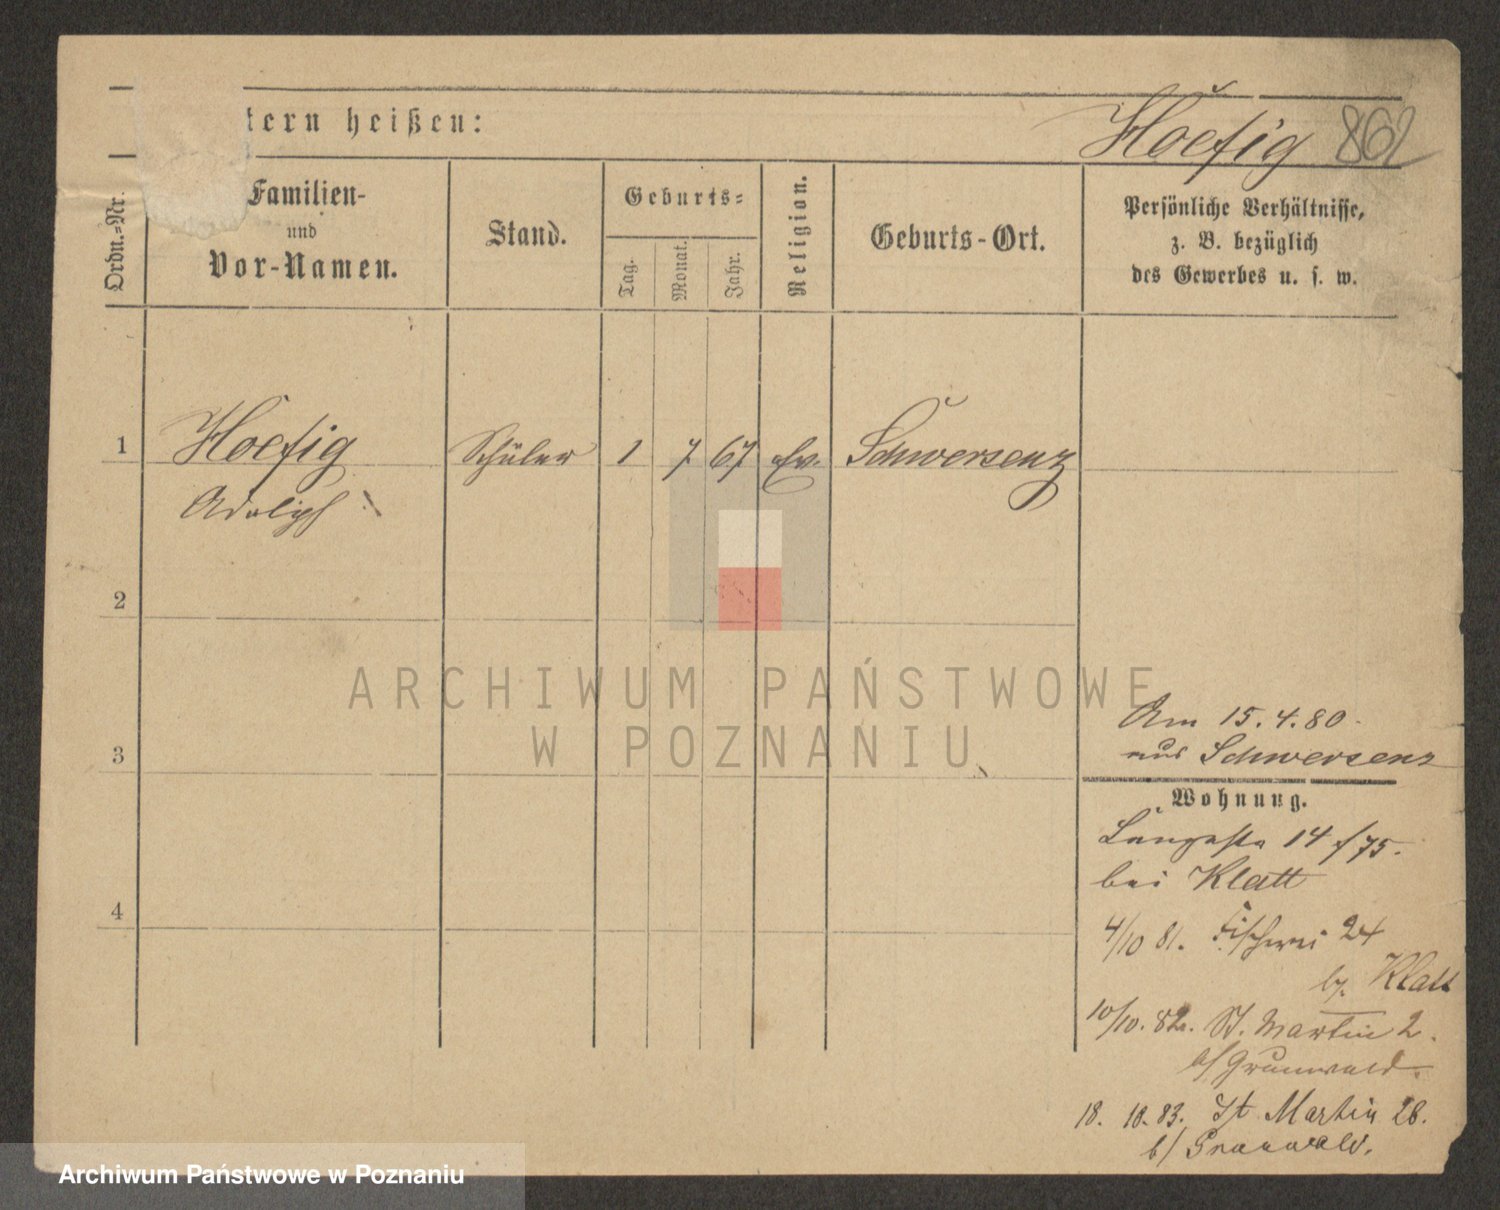 tern heißen:
Hoefig 862
Ordn.=Nr.
Familien-
und
Vor-Namen.
Stand.
Geburts=
Tag.
Monat.
Jahr.
Religion.
Geburts-Ort.
Persönliche Verhältnisse,
z. B. bezüglich
des Gewerbes u. s. w.
1 Hoefig Schüler 1 7 67 Ev. Schwersenz
Adolph
2
3
4
Am 15.4.80.
aus Schwersenz
Wohnung.
Langestr 14 /75.
bei Klatt
4/10 81. Fischerei 24
by. Klatt
10/10. 82. St. Martin 2.
b/ Grunwald.
18. 10. 83. St Martin 26.
b/ Grunwald.
ARCHIWUM PAŃSTWOWE
W POZNANIU
Archiwum Państwowe w Poznaniu